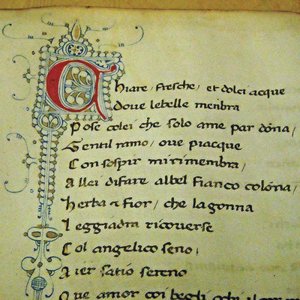 Chiare, fresche, et dolci acque
doue le belle menbra
Pose colei che solo a me par dóna,
Gentil ramo, oue piacque
Con sospir mi rimenbra,
A llei di fare al bel fianco colóna,
Herba et fior, che la gonna
Leggiadra ricouerse
Col angelico seno,
Aier satio sereno
Oue amor coi begli ochi il